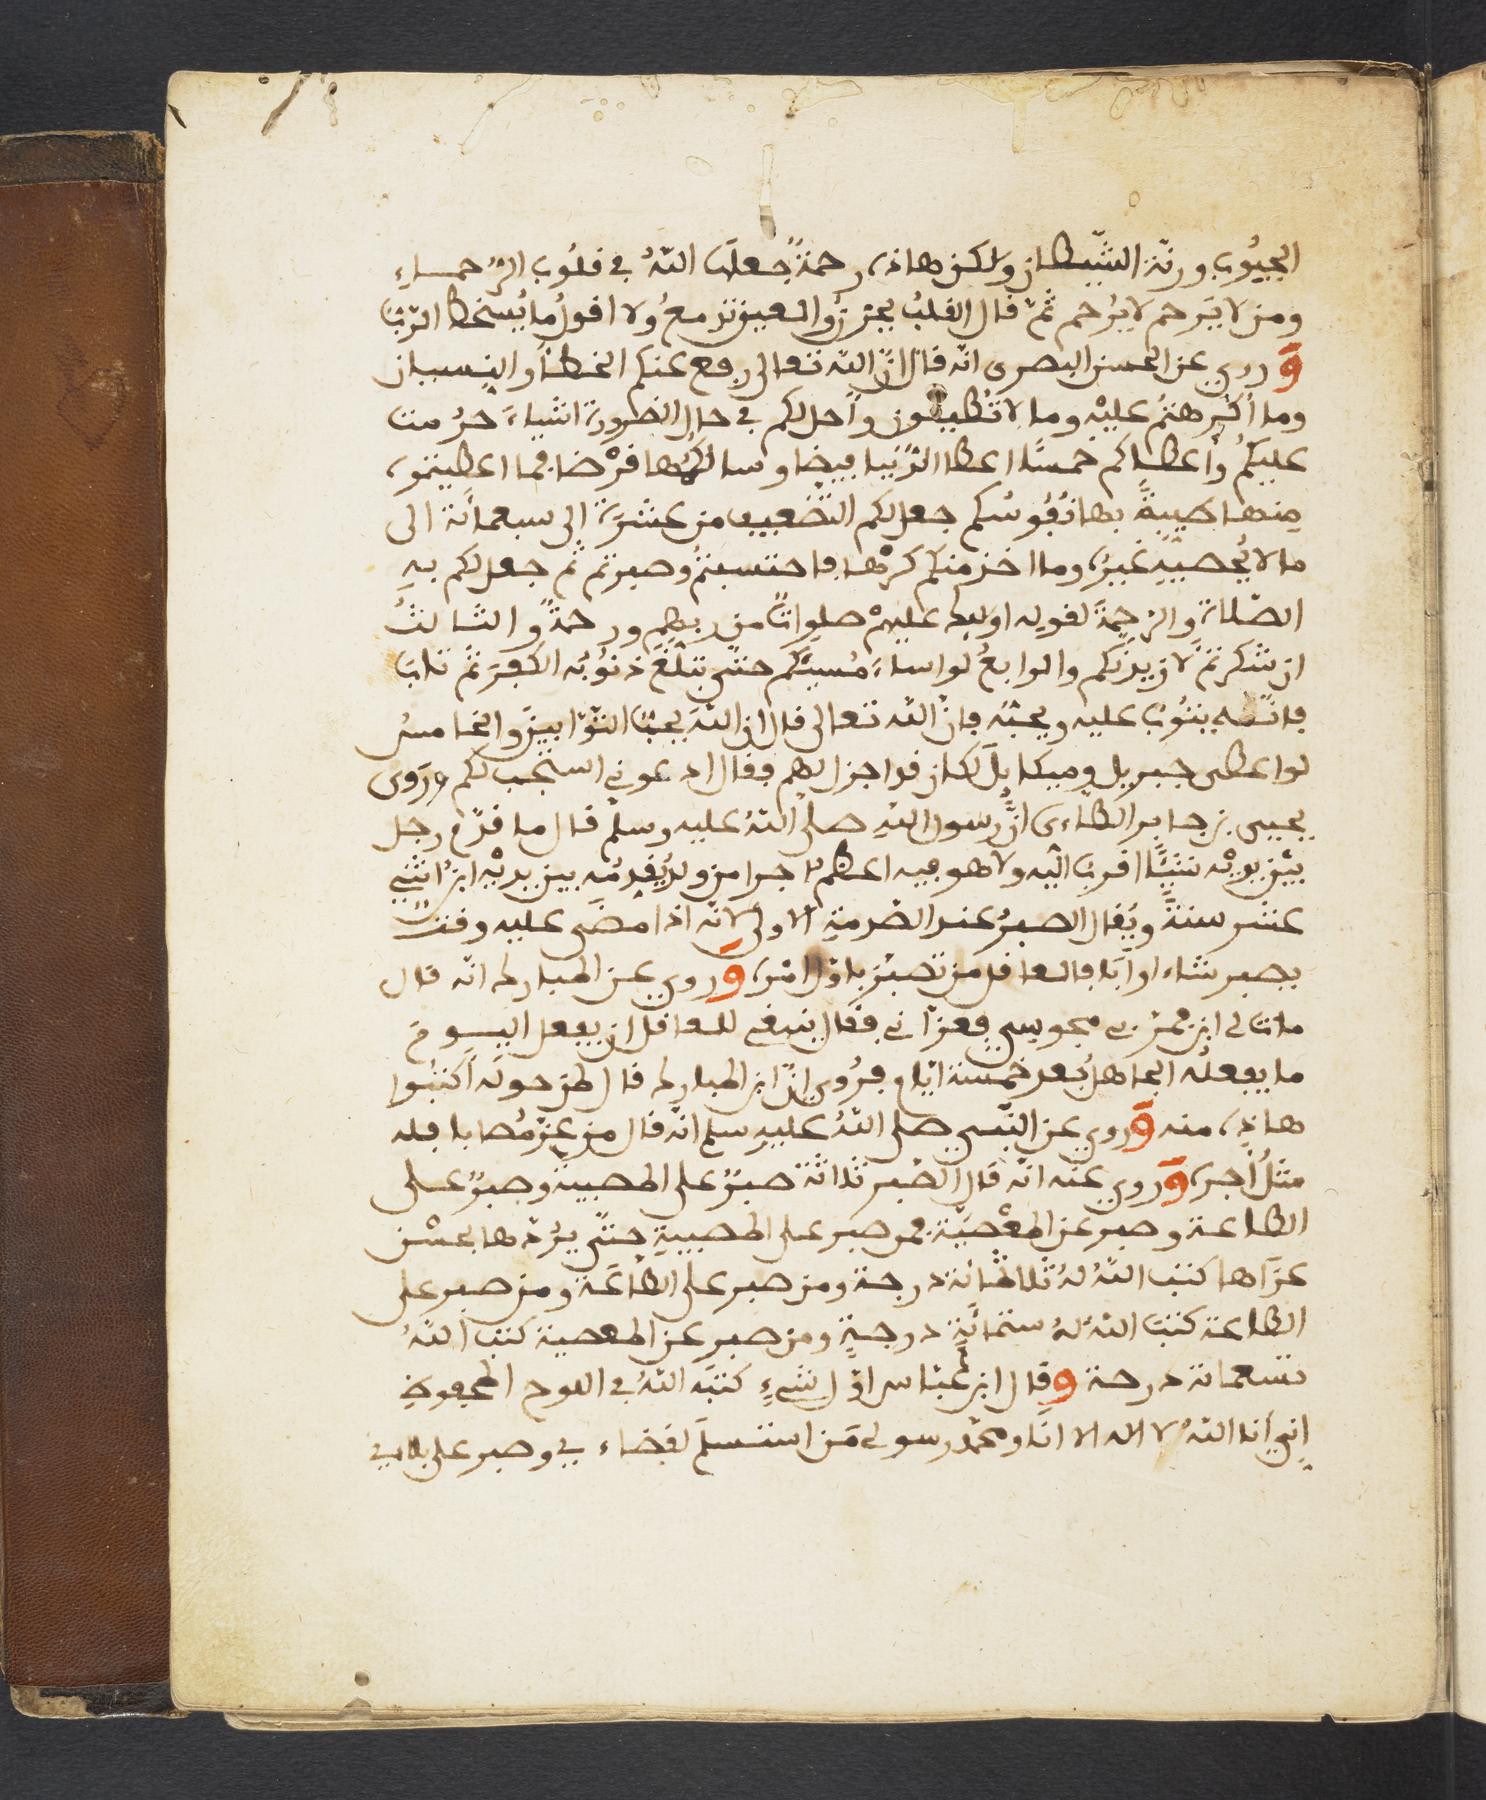 الجيُوبِ ورنّةِ الشّيطان ولكن هاذه رحمةً جعلَها اللّهُ في قلُوب الرُّحماءِ
ومن لا يَرحم لا يُرْحم ثمّ قال القلبُ يحزنُ والعين تدمعُ ولا اقولُ ما يُسخط الربَّ
وَروي عن الحسن البصرى انّه قال انّ اللّه تعالى رفع عنكم الخطأ والنِسيان
وما أُكرهتمُ عليْه وما لا تُطيقون وأحل لكم في حال الضرورة اشياءَ حرُمت
عليكمُ وأعطاكم خمسًا اعطا الدّنيا فيضا وسالكمُوها قرْضا فما اعطيتموه
مِنها طيبةً بها نُفُوسُكم جعل لكم التضْعِيف من عشرَة إلى سبعمائة الى
ما لا يُحصيهِ غيرُه وما اخذ منكم كرْها فاحتسبتمُ وصبرتم ثم جعل لكم بهِ
الصّلاةَ والرحمةَ لقوله اولٰئك عليهمْ صلواتٌ من ربهم ورحمةٌ والثالثُ
ان شكرتمْ لازيدنّكم والرابعُ لو اساءَ مُسيئكم حتّى تبلْغَ ذنوبُه الكفرَ ثمّ تابَ
فانّه يتُوب عليه ويحبّه فانّ اللّه تعالى قال ان اللّهَ يحبّ التوّابينَ والخامسُ
لو اعطى جبريل وميكايلَ لكان قد اجزل لهم فقال ادعوني استجب لكم وروى
يحيى بن جابر الطاءى انَّ رسول اللّهِ صلى اللّهُ عليه وسلم قال ما قدّم رجل
بيْن يديْه شيئًا احبَّ اليْه ولا هو فيه اعظم اجرا من ولدٍ يُقدمُه بين يديْه ابنُ اثنتي
عشر سنةً ويُقال الصبرُ عند الصّدمةِ الاولى لانّه اذا مضَى عليه وقت
يصبر شاء او أبَا فالعاقل مَن تصبّر باوّل امْره وَروي عن المبارك انّه قال
مات لي ابن فمرّ بي مجوسِي فعزّاني فقال ينبغي للعاقل ان يفعل اليومَ
ما يفعلُه الجاهلُ بعد خمسة ايّامٍ فرُوي انّ ابن المبارك قال لمن حولَه أُكتبُوا
هاذِه منه وَروي عن النَّبي صلى اللّهُ عليهِ وسلم انّه قال من عزّى مُصابا فله
مثلُ أجره وَروي عنْه انّه قال الصّبر ثلاثة صبرٌ على المصيبة وصبرٌ على
الطاعة وصبر عن المعْصيَة فمن صبر على المصيبةِ حتّى يرُدّها بحسْن
عزَاها كتب اللّهُ لهُ ثلاثمائة درجة ومن صبر على الطاعَة ومن صبر على
الطاعة كتبَ اللّهُ لهُ ستمائةِ درجةٍ ومن صبر عن المعصية كتبَ اللّهُ
تسعمائة درجة وقال ابن عبّاس اوّل شيءٍ كتبَه اللّهُ في اللوح المحفوظ
اِني أنا اللّهُ لا اله الا انَا ومحمّد رسولي مَن استسلَم لقضاءِ يي وصبر على بلاءيي